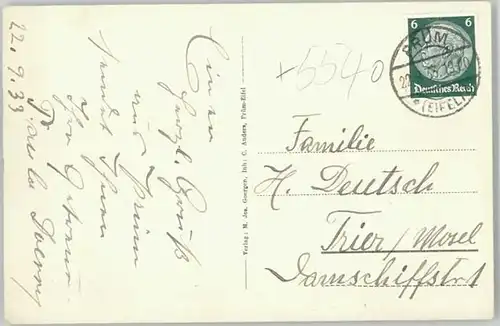 22. 9. 33
Einen
herzl. Gruß
aus Prüm
sendet Ihnen
Ihre
Verlag: M. Jos. Goergen, Inh: C. Anders, Prüm-Eifel
+5540
6 6
Deutsches Reich
PRÜM
(EIFEL)
Familie
H. Deutsch
Trier/Mosel
Damschiffstr 1